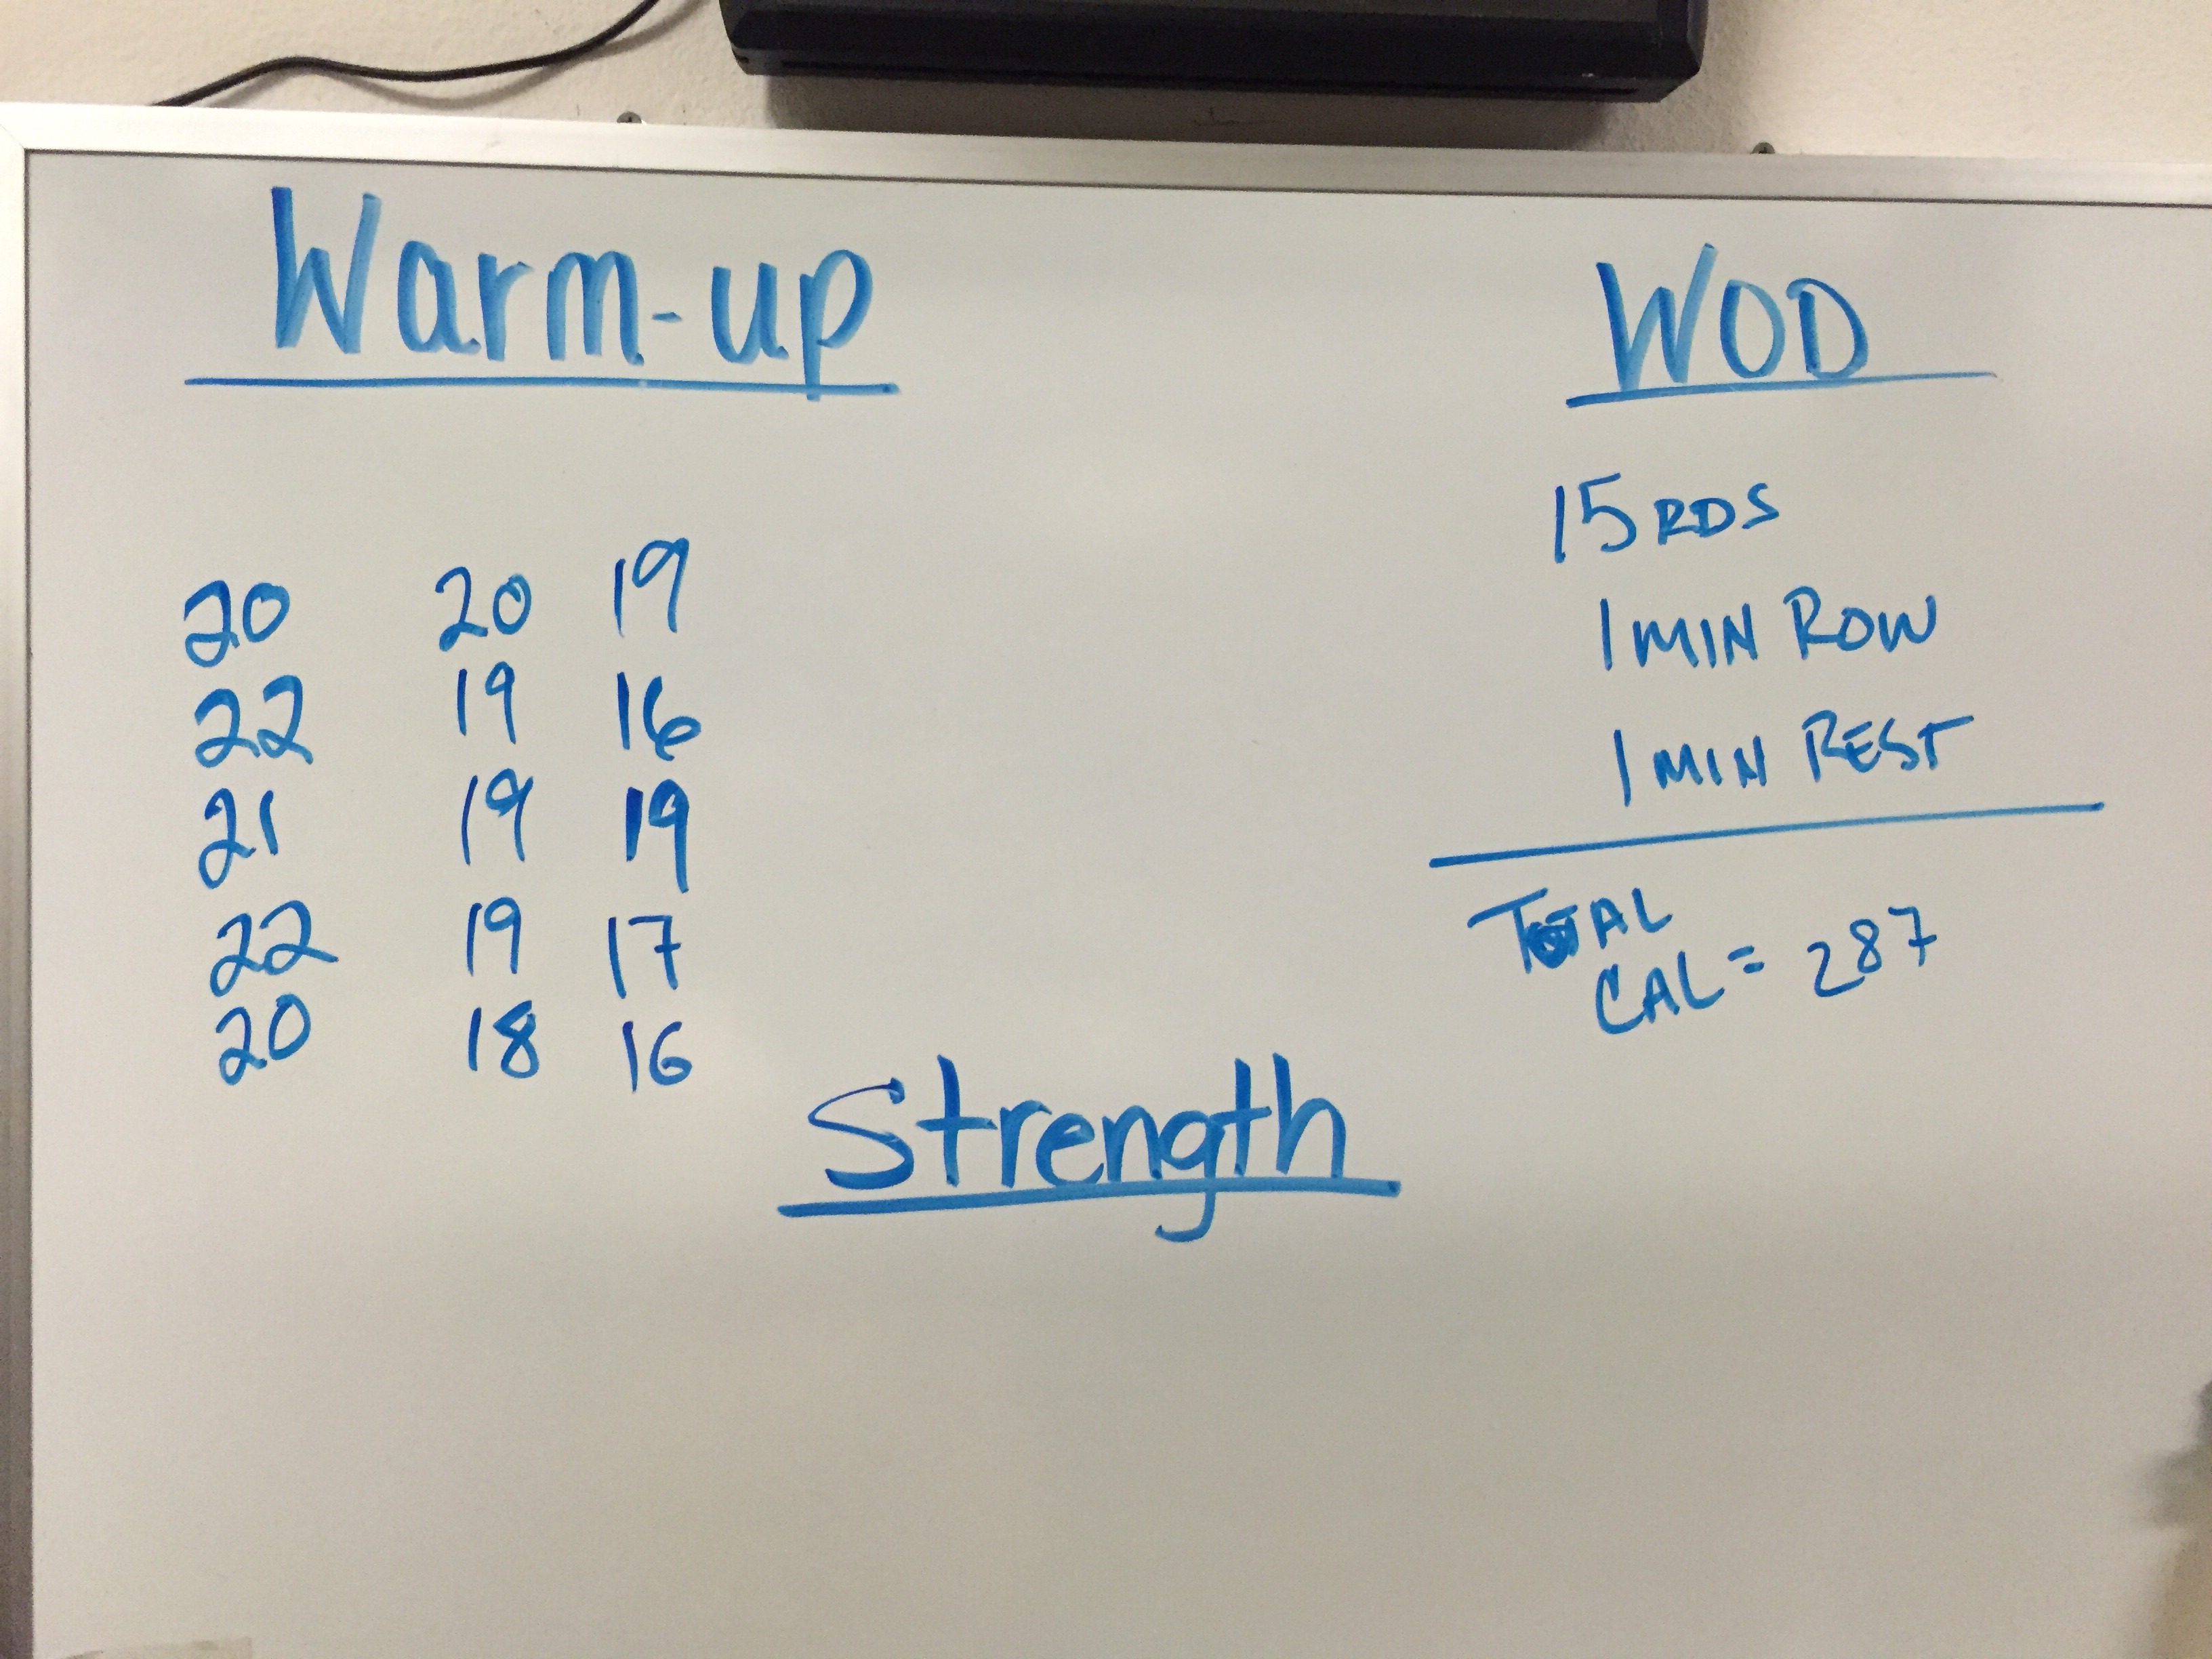 Warm-up
20 20 19
22 19 16
21 19 19
22 19 17
20 18 16
WOD
15 RDS
1 MIN ROW
1 MIN REST
TOTAL
CAL = 287
Strength